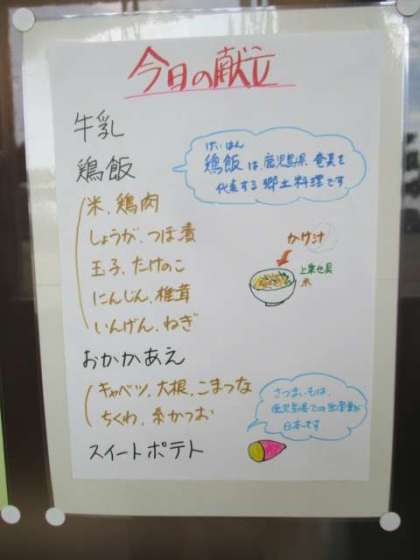 今日の献立
牛乳
鶏飯
けいはん
鶏飯は、鹿児島県、奄美を
代表する郷土料理です
米、鶏肉
しょうが、つぼ漬
玉子、たけのこ
にんじん、椎茸
いんげん、ねぎ
かけ汁
上に乗せる具
米
おかかあえ
キャベツ、大根、こまつな
ちくわ、糸かつお
さつまいもは、
鹿児島県での生産量が
日本一です
スイートポテト